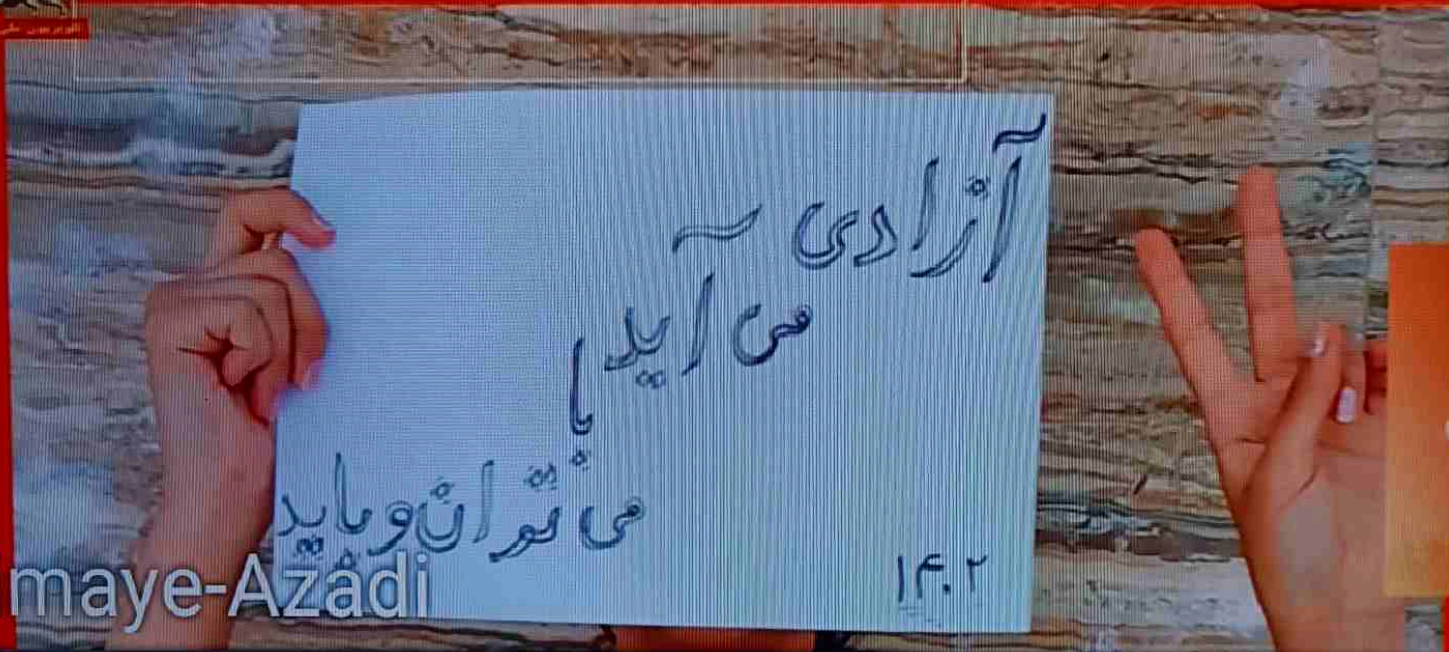 آزادی
می آید
با
می توان و باید
۱۴۰۲
maye-Azadi